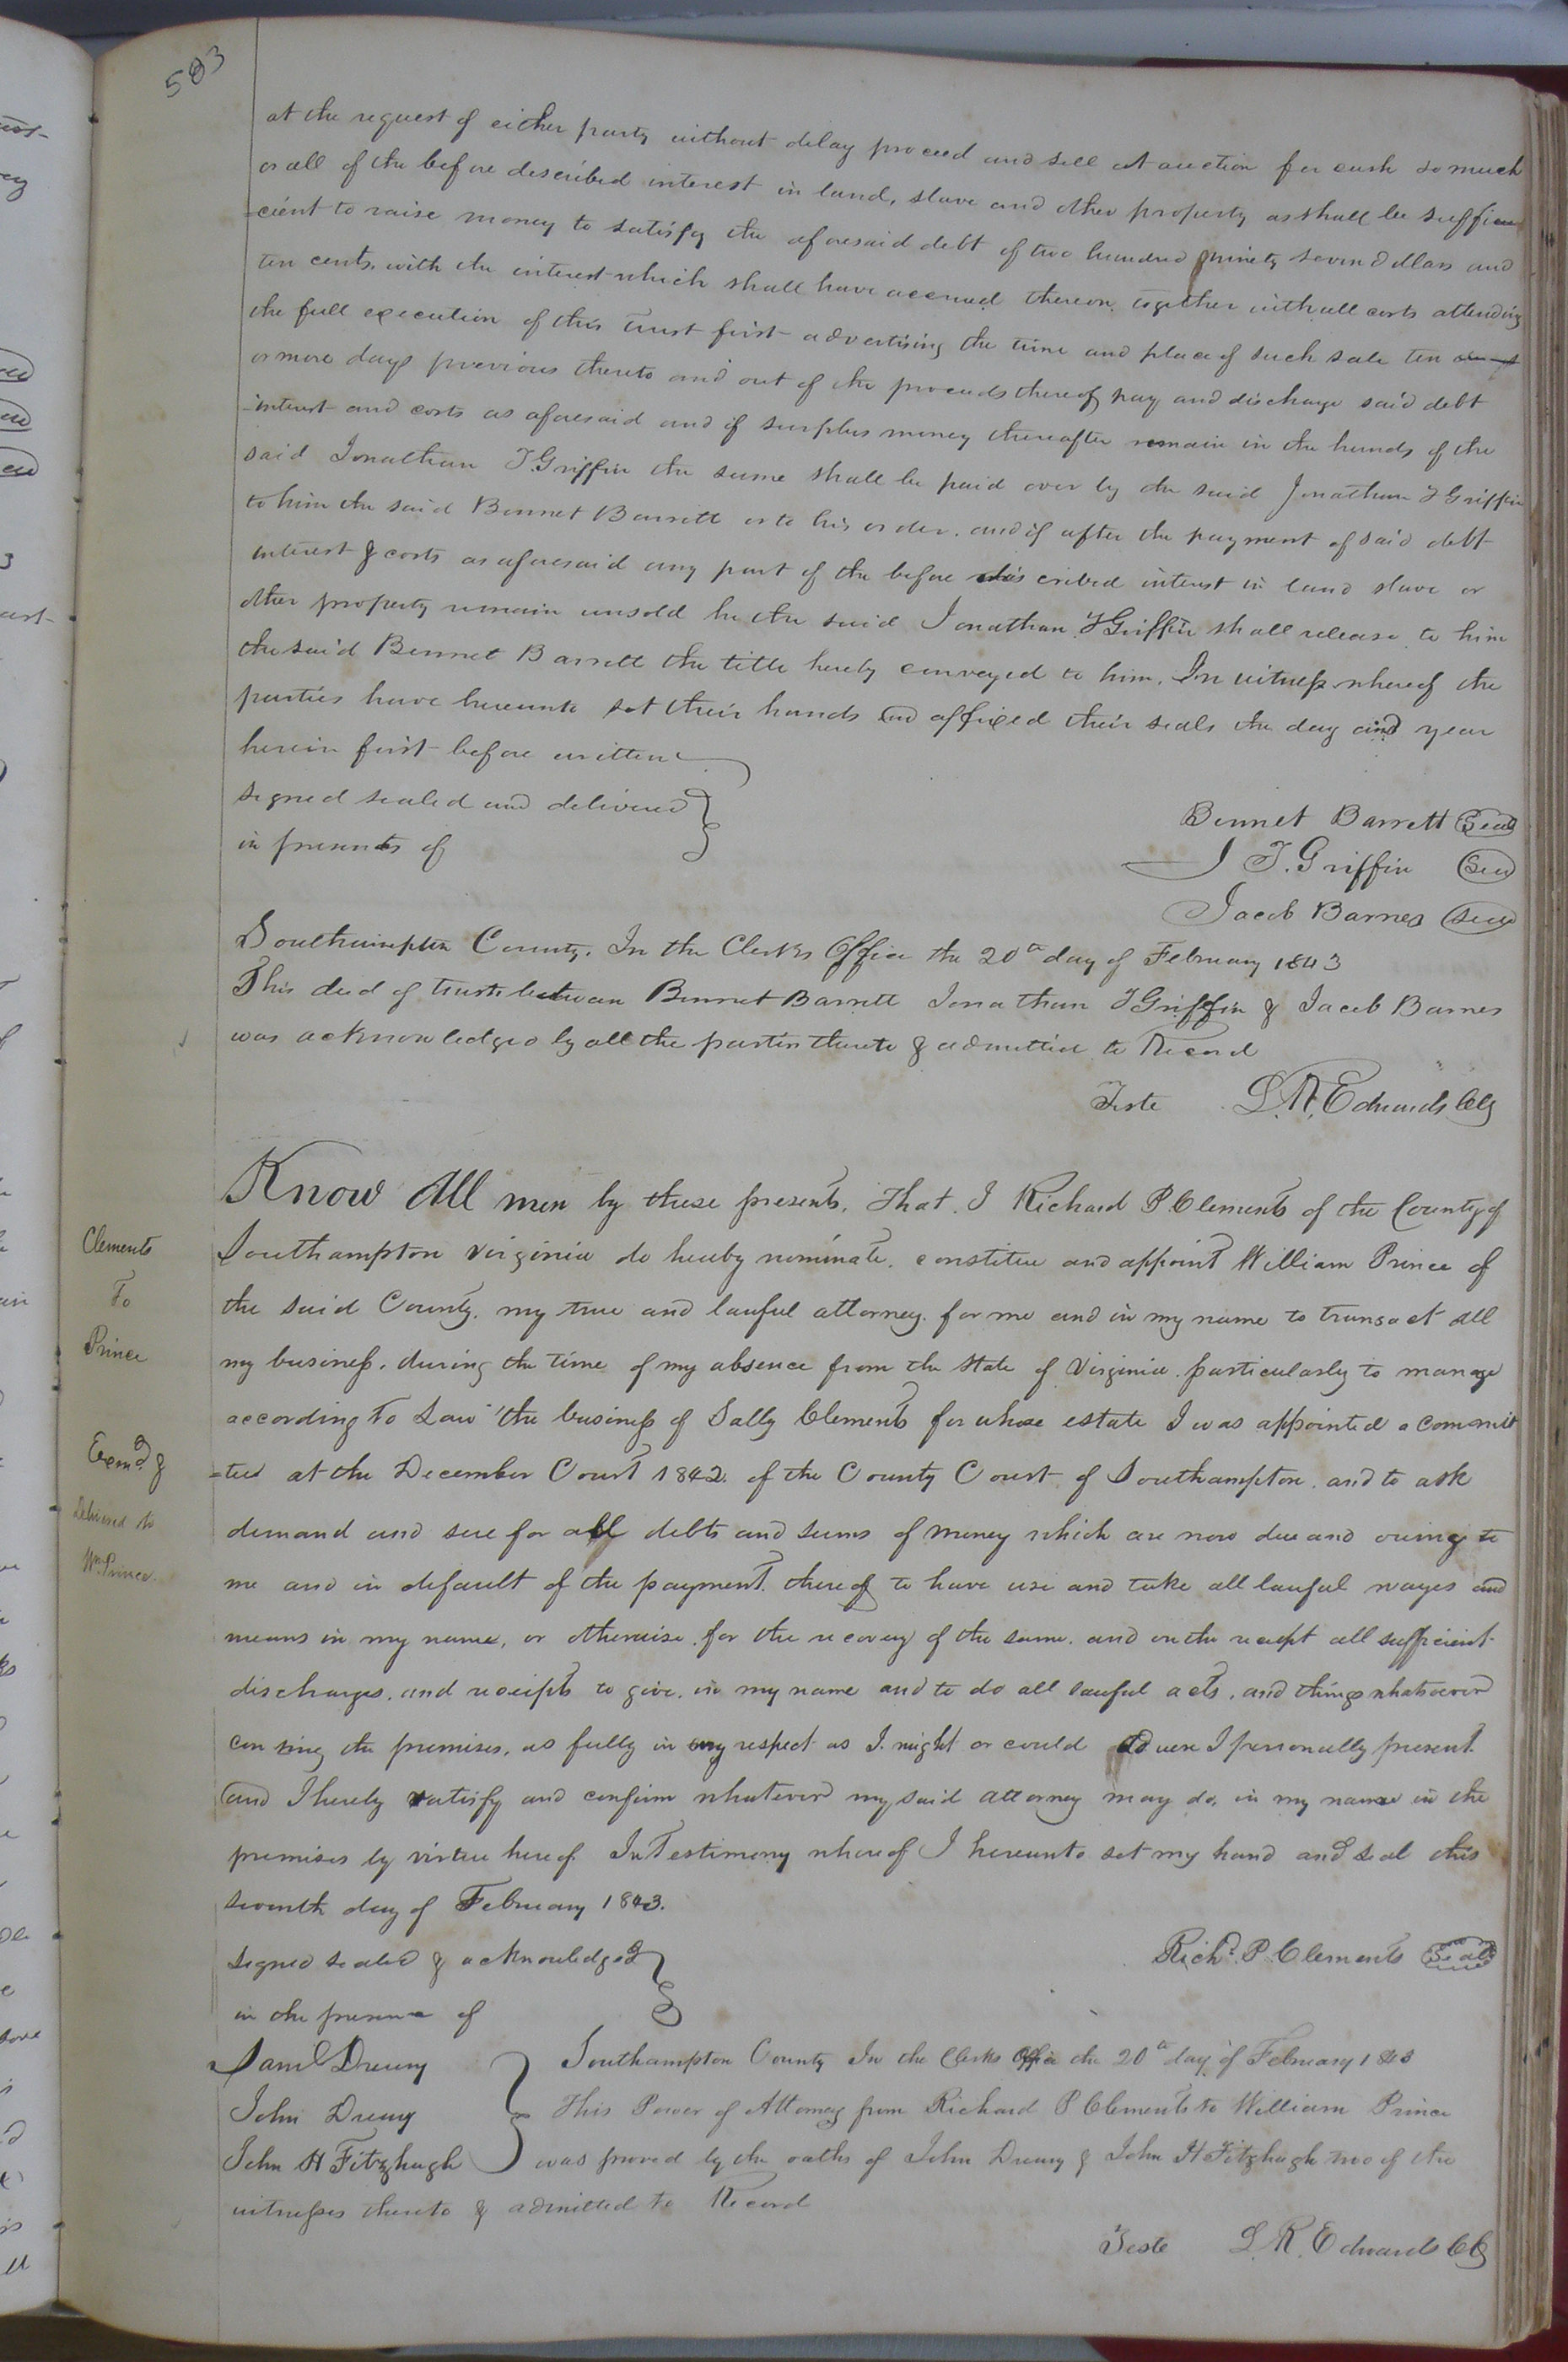 503
at the request of either party without delay proceed and sell at auction for cash so much
or all of the before described interest in land, slave and other property as shall be suffien
=cient to raise money to satisfy the aforesaid debt of two hundred & ninety seven Dollars and
ten cents, with the interest which shall have accrued thereon, together with all costs attending
the full execution of this trust first advertising the time and place of such sale ten
or more days previous thereto and out of the proceeds thereof pay and discharge said debt
interest and costs as aforesaid and if surplus money thereafter remain in the hands of the
said Jonathan T. Griffin the same shall be paid over by the said Jonathan T Griffin
to him the said Bennet Barrett or to his order. and if after the payment of said debt
interest & costs as aforesaid any part of the before discribed interest in land slave or
other property remain unsold he the said Jonathan T Griffin shall release to him
the said Bennet Barrett the title hereby conveyed to him. In witness whereof the
parties have hereunto set their hands and affixed their seals the day and year
herein first before written
signed sealed and delivered
in presents of
Bennet Barrett Seal
J T. Griffin Seal
Jacob Barnes Seal
Southampton County. In the Clerks Office the 20th day of February 1843
This deed of trust between Bennet Barrett Jonathan T Griffin & Jacob Barnes
was acknowledged by all the parties thereto & admitted to Record
Teste L. R. Edwards Clk
Clements
To
Prince
Exmd. &
Delivered to
Wm Prince.
Know All men by these presents, That I Richard P Clements of the County of
Southampton Virginia do hereby nominate, constitue and appoint William Prince of
the said County, my true and lawful attorney for me and in my name to transact all
my business, during the time of my absence from the State of Virginia, particularly to manage
according to Law the business of Sally Clements for whose estate I was appointed a commit
=tee at the December Court 1842. of the County Court of Southampton, and to ask
demand and sue for all debts and sums of money which are now due and owing to
me and in default of the payment thereof to have use and take all lawful wayes and
means in my name, or otherwise, for the recovery of the same, and on the receipt all sufficient
discharges, and receipts to give, in my name and to do all lawful acts, and things whatsoever
con ning the premises, as fully in any respect as I might or could do were I personally present.
and I hereby ratisfy and confirm whatever my said attorney may do, in my name in the
premises by virtue hereof. In Testimony whereof I hereunto set my hand and seal this
seventh day of February 1843.
signed sealed & acknowledged
in the presence of
Richd. P. Clements Seal
Saml Drewry
John Drewry
John H Fitzhugh
Southampton County In the Clerks Office the 20th day of February 1843
This Power of Attorney from Richard P Clements to William Prince
was proved by the oaths of John Drewry & John H Fitzhugh two of the
witnesses thereto & admitted to Record
Teste L. R. Edwards Clk